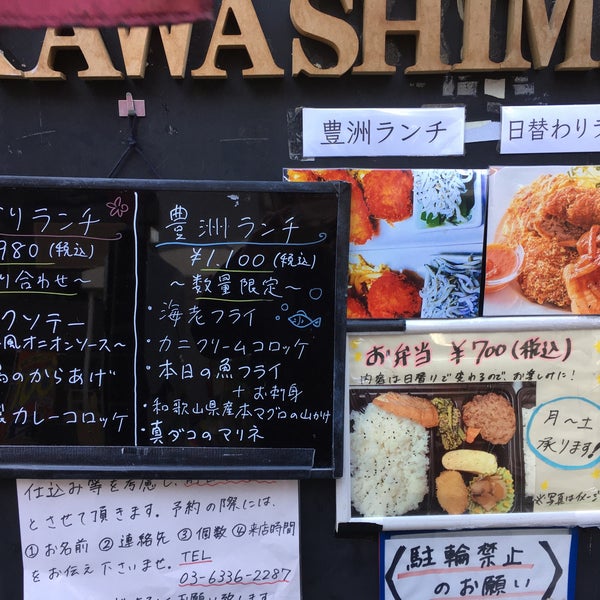 KAWASHIM
豊洲ランチ
日替わりラ
りランチ
980(税込)
り合わせ〜
クソテー
風オニオンソース〜
のからあげ
カレーコロッケ
豊洲ランチ
¥1.100(税込)
〜数量限定〜
・海老フライ
・カニクリームコロッケ
・本日の魚フライ
+お刺身
・和歌山県産本マグロの山かけ
・真ダコのマリネ
お弁当 ¥700(税込)
内容は日替りで変わるので、お楽しみに!
月〜土
承ります!
※写真はイメージ
仕込み等を考慮し、
とさせて頂きます。予約の際には、
①お名前 ②連絡先 ③個数 ④来店時間
をお伝え下さいませ。 TEL
03-6336-2287
お願い致します
駐輪禁止
のお願い